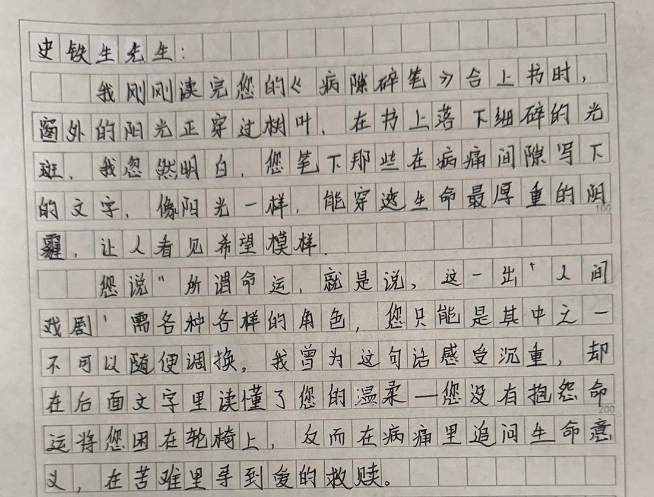 史铁生先生：
我刚刚读完您的《病隙碎笔》合上书时，
窗外的阳光正穿过树叶，在书上落下细碎的光
斑，我忽然明白，您笔下那些在病痛间隙写下
的文字，像阳光一样，能穿透生命最厚重的阴
100
霾，让人看见希望模样.
您说"所谓命运，就是说，这一出'人间
戏剧'需各种各样的角色，您只能是其中之一
不可以随便调换，我曾为这句话感受沉重，却
在后面文字里读懂了您的温柔—您没有抱怨命
200
运将您困在轮椅上，反而在病痛里追问生命意
义，在苦难里寻到爱的救赎。